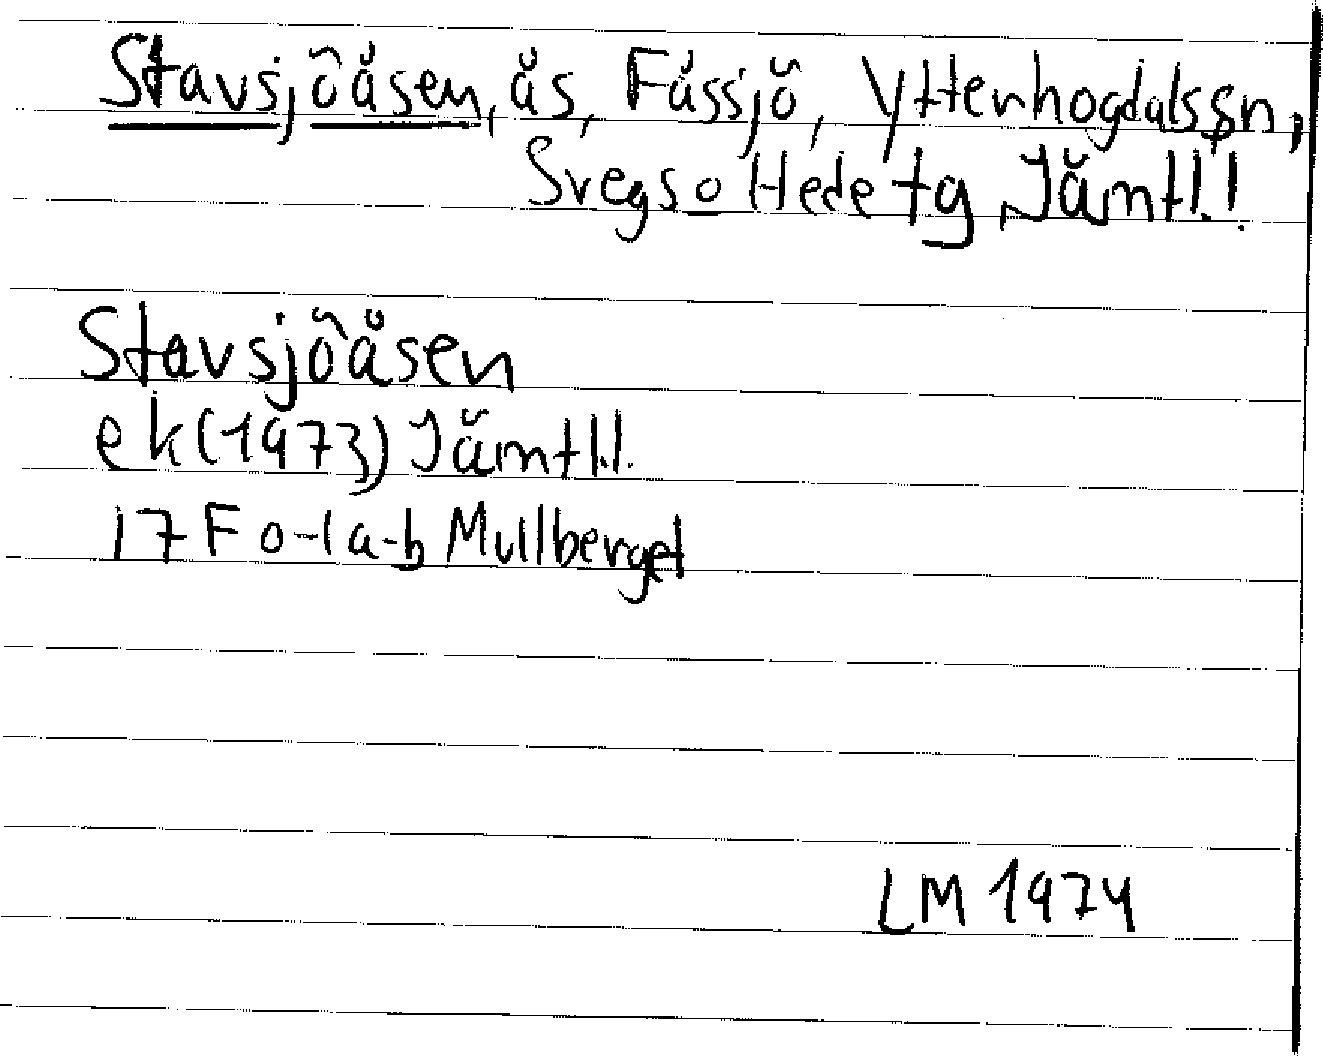 Stavsjöåsen, ås, Fåssjö, Ytterhogdals sn,
Svegs o Hede tg Jämtl.l
Stavsjöåsen
ek (1973) Jämtl.l.
17 F 0-1 a-b Mullberget
LM 1974